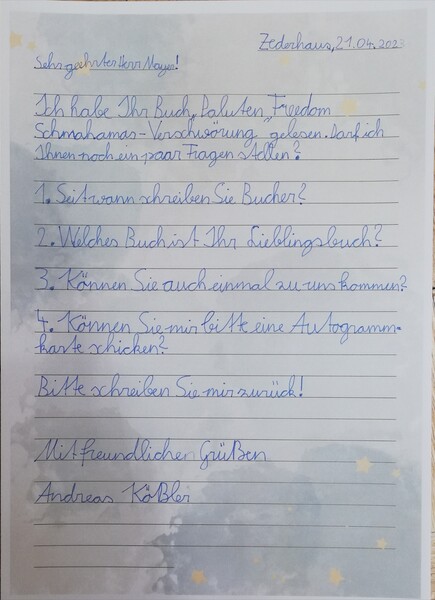 Zederhaus, 21.04.2023
Sehr geehrter Herr Mayer!
Ich habe Ihr Buch „Paluten, Freedom
Schmahamas-Verschwörung" gelesen. Darf ich
Ihnen noch ein paar Fragen stellen?
1. Seit wann schreiben Sie Bücher?
2. Welches Buch ist Ihr Lieblingsbuch?
3. Können Sie auch einmal zu uns kommen?
4. Können Sie mir bitte eine Autogramm-
karte schicken?
Bitte schreiben Sie mir zurück!
Mit freundlichen Grüßen
Andreas Kößler